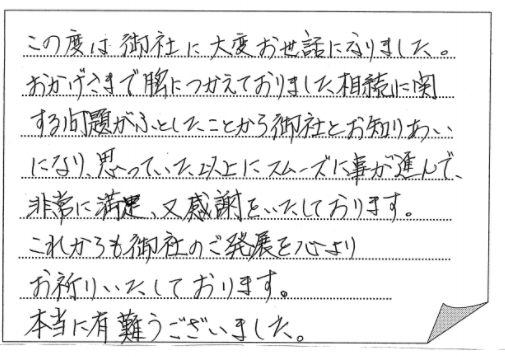 この度は御社に大変お世話になりました。
おかげさまで脇につかえておりました相続に関
する問題がふとしたことから御社とお知りあい
になり、思っていた以上にスムーズに事が進んで、
非常に満足、又感謝をいたしております。
これからも御社のご発展を心より
お祈りいたしております。
本当に有難うございました。